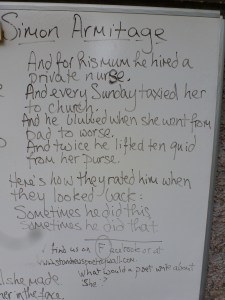 Simon Armitage
And for his mum he hired a
private nurse.
And every Sunday taxied her
to church.
And he blubbed when she went from
bad to worse.
And twice he lifted ten quid
from her purse.
Here's how they rated him when
they looked back:
Sometimes he did this,
sometimes he did that.
find us on F facebook or at
What would a poet write about
she
she made
her in the face.